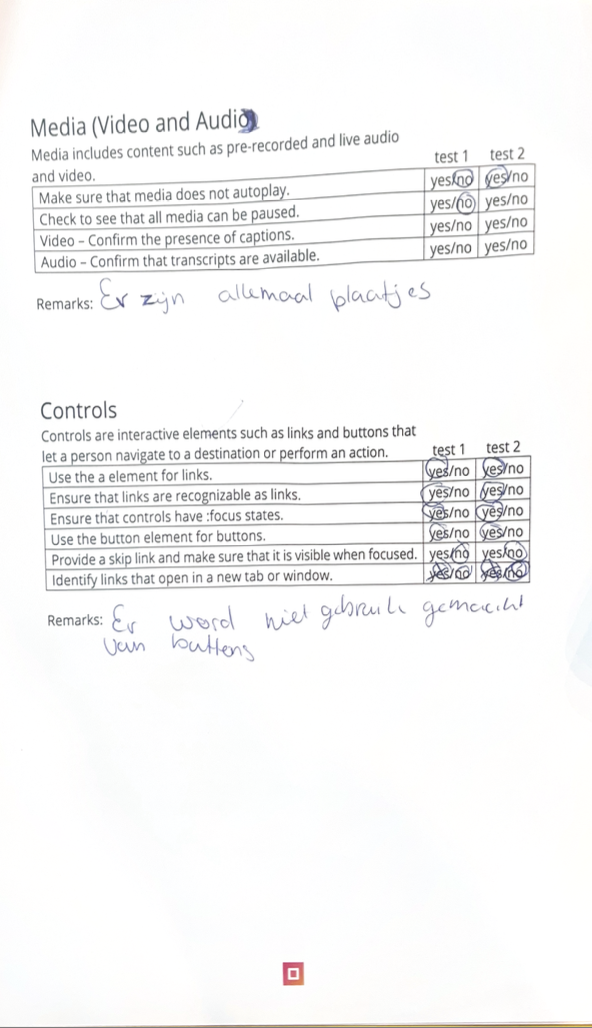 Media (Video and Audio)
Media includes content such as pre-recorded and live audio
and video.
test 1 test 2
Make sure that media does not autoplay. yes/no yes/no
Check to see that all media can be paused. yes/no yes/no
Video – Confirm the presence of captions. yes/no yes/no
Audio – Confirm that transcripts are available. yes/no yes/no
Remarks: Er zijn allemaal plaatjes
Controls
Controls are interactive elements such as links and buttons that
let a person navigate to a destination or perform an action. test 1 test 2
Use the a element for links. yes/no yes/no
Ensure that links are recognizable as links. yes/no yes/no
Ensure that controls have :focus states. yes/no yes/no
Use the button element for buttons. yes/no yes/no
Provide a skip link and make sure that it is visible when focused. yes/no yes/no
Identify links that open in a new tab or window. yes/no yes/no
Remarks: Er word niet gebruik gemaakt
van buttens